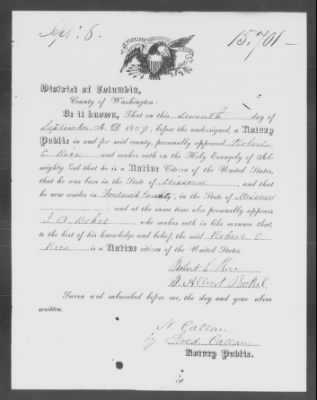 Sept. 6.
15.701 —
District of Columbia,
County of Washington:
Be it known, That on this seventh day of
September A. D 1859, before the undersigned, a Notary
Public in and for said county, personally appeared Robert
C. and makes oath on the Holy Evangely of Al-
mighty God that he is a Native Citizen of the United States,
that he was born in the State of Missouri, and that
he now resides in County, in the State of Missouri
, and at the same time also personally appears
who makes oath in like manner that,
to the best of his knowledge and belief, the said Robert C
is a Native citizen of the United States.
Robert C.
Albert
Sworn and subscribed before me, the day and year above
written.
N Callan
by Callan
Notary Public.